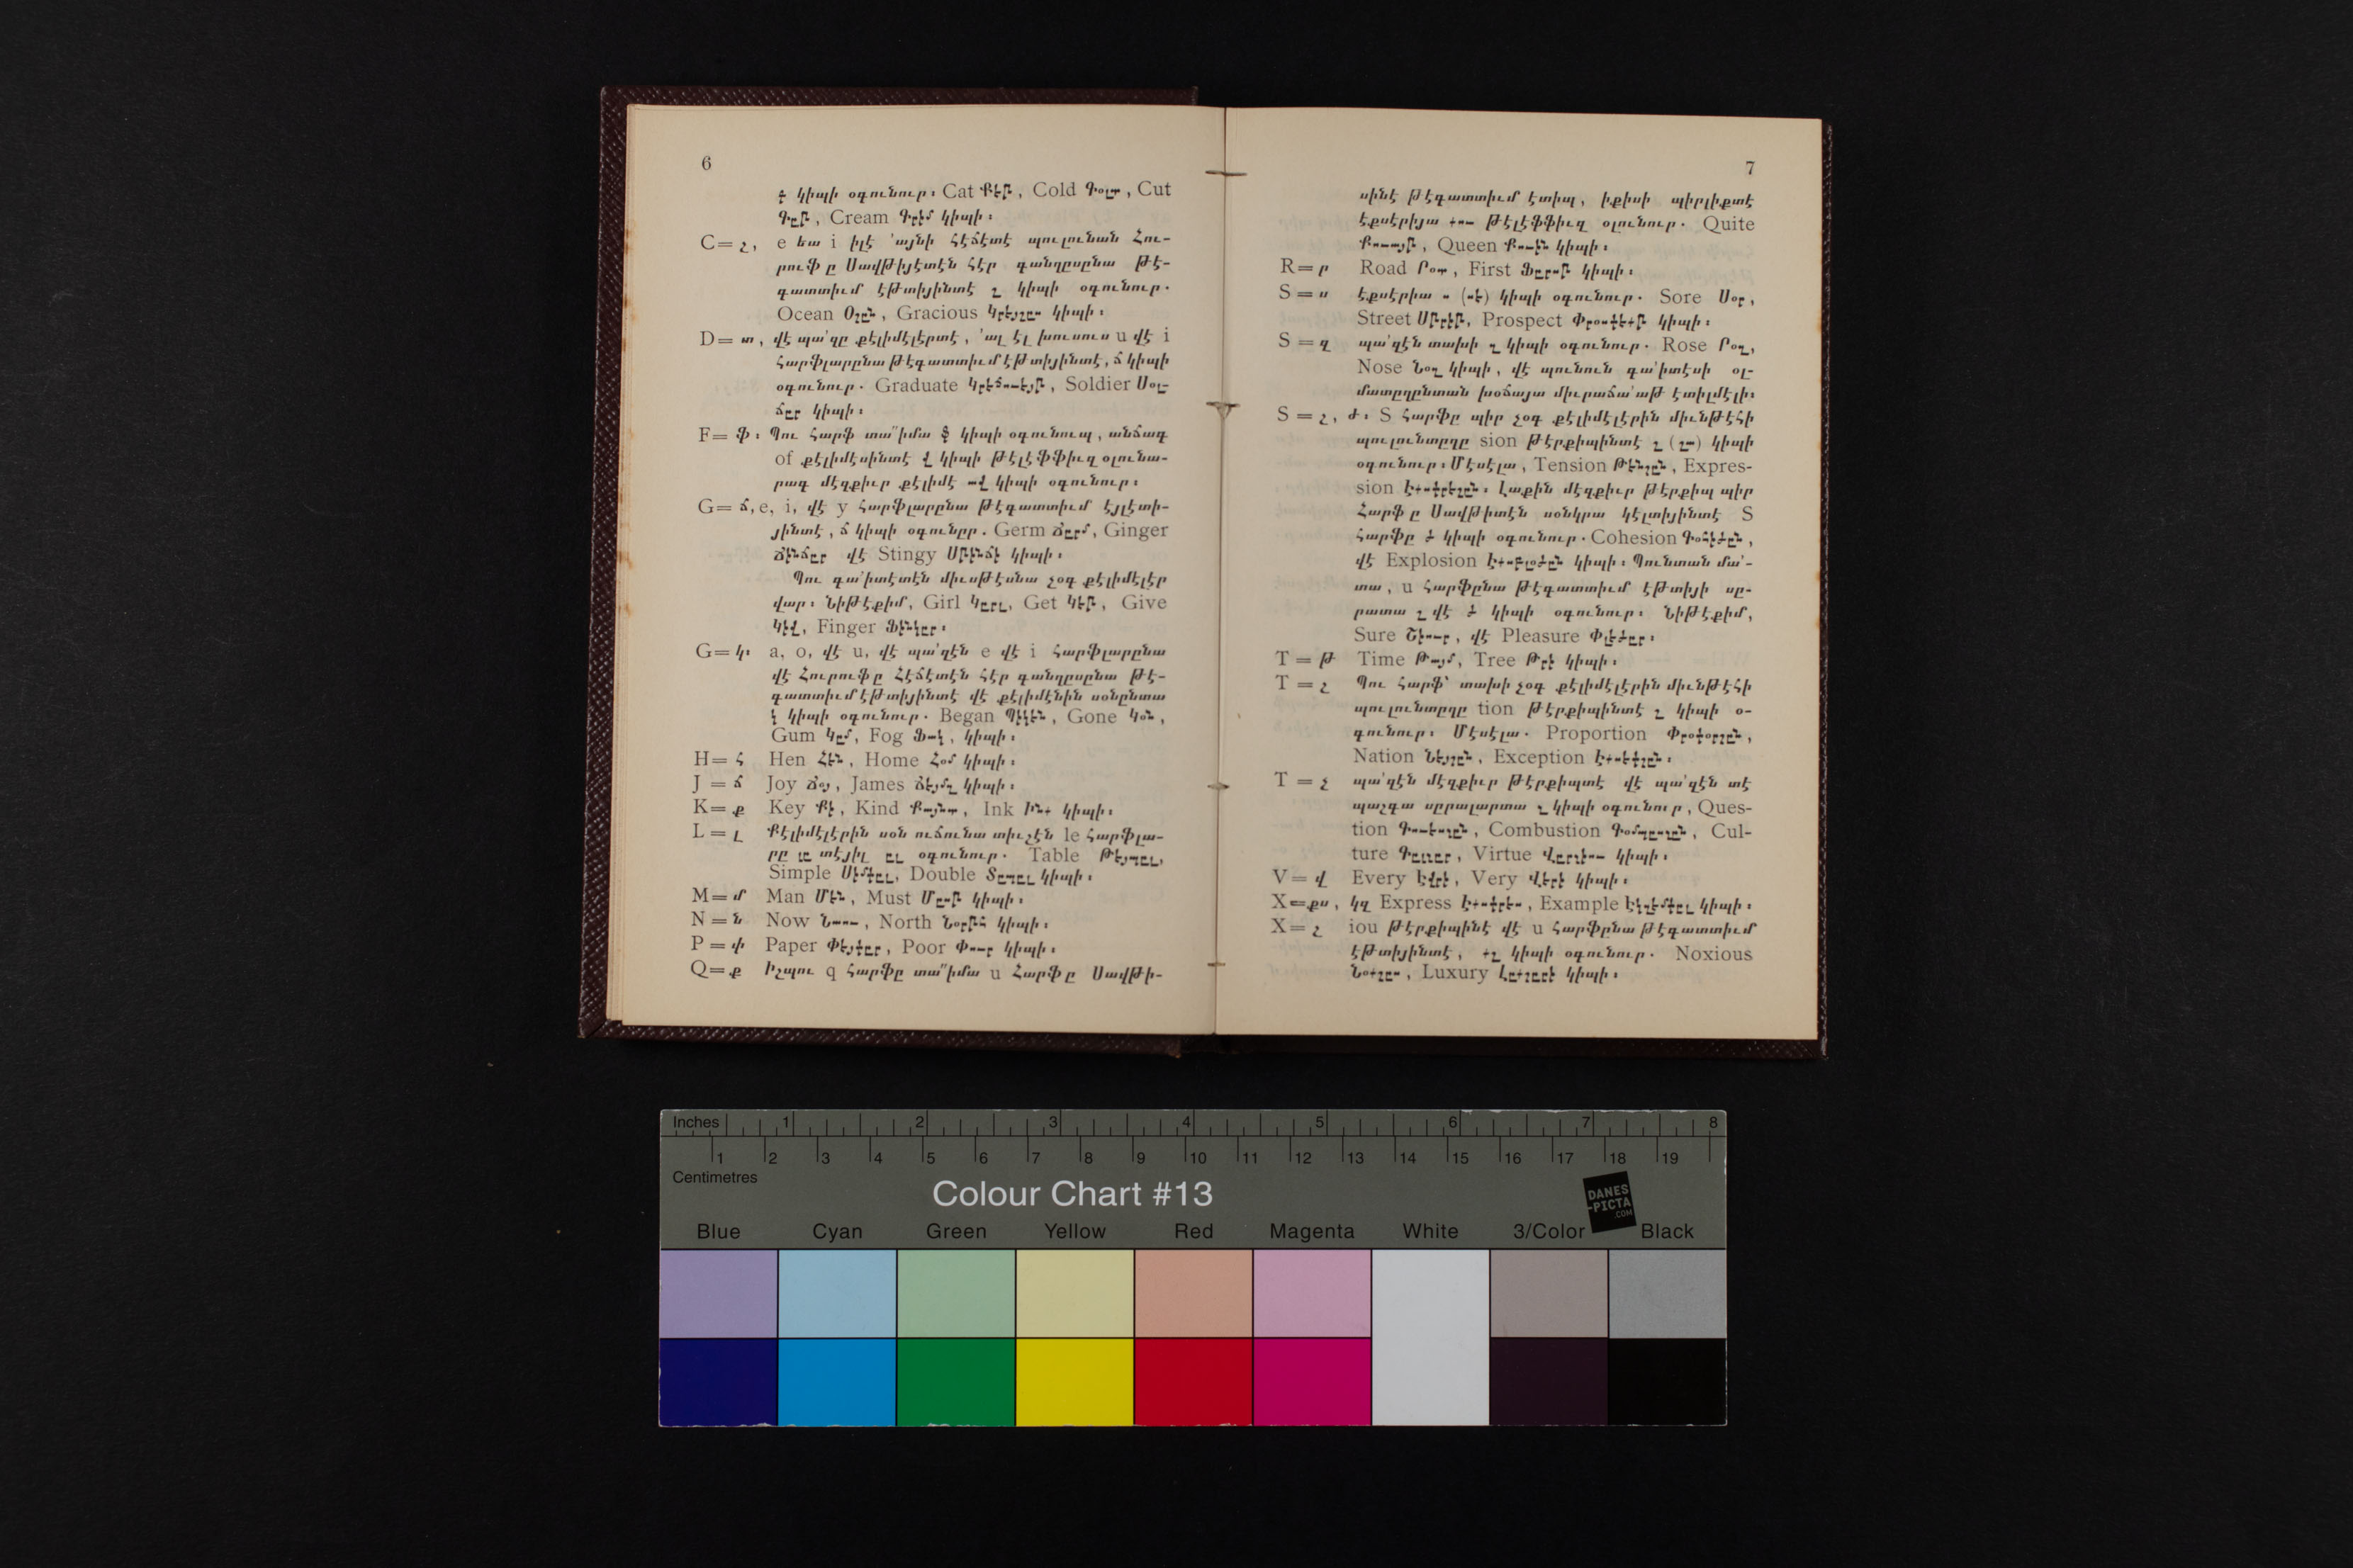 6
ք կիպի օգունուր։ Cat Քէթ, Cold Գօլտ, Cut
Գըթ, Cream Գրէմ կիպի։
C= չ, e եա i իլէ ՚այնի հէճէտէ պուլունան Հու-
րուֆը Սավթիյէտէն հէր գանղըսընա թէ-
գատտիւմ էթտիյինտէ շ կիպի օգունուր.
Ocean Օշըն, Gracious Կրէյշըս կիպի։
D= տ, վէ պա՛զը քէլիմէլէրտէ, ՚ալ էլ խուսուս u վէ i
հարֆլարընա թէգատտիւմ էթտիյինտէ, ճ կիպի
օգունուր. Graduate Կրէճուէյթ, Soldier Սօլ-
ճըր կիպի։
F= ֆ։ Պու հարֆ տա՛՛իմա ֆ կիպի օգունուպ, անճագ
of քէլիմէսինտէ վ կիպի թէլէֆֆիւզ օլունա-
րագ մէզքիւր քէլիմէ ավ կիպի օգունուր։
G= ճ, e, i, վէ y հարֆլարընա թէգատտիւմ էյլէտի-
յինտէ, ճ կիպի օգունըր. Germ Ճըրմ, Ginger
Ճինճըր վէ Stingy Սթինճի կիպի։
Պու գա՛իտէտէն միւսթէսնա չօգ քէլիմէլէր
վար։ Նիթէքիմ, Girl Կըրլ, Get Կէթ, Give
Կիվ, Finger Ֆինկըր։
G= կ։ a, o, վէ u, վէ պա՛զէն e վէ i հարֆլարընա
վէ Հուրուֆը Հէճէտէն հէր գանղըսընա թէ-
գատտիւմ էթտիյինտէ վէ քէլիմէնին սօնընտա
կ կիպի օգունուր. Began Պիկէն, Gone Կօն,
Gum Կըմ, Fog Ֆակ, կիպի։
H= հ Hen Հէն, Home Հօմ կիպի։
J = ճ Joy Ճօյ, James Ճէյմզ կիպի։
K= ք Key Քի, Kind Քայնտ, Ink Ինք կիպի։
L = լ Քէլիմէլէրին սօն ուճունա տիւշէն le հարֆլա-
րը լը տէյիլ ըլ օգունուր. Table Թէյպըլ,
Simple Սիմփըլ, Double Տըպըլ կիպի։
M= մ Man Մէն, Must Մըսթ կիպի։
N = ն Now Նաու, North Նօրթհ կիպի։
P = փ Paper Փէյփըր, Poor Փուր կիպի։
Q= ք Իշպու q հարֆը տա՛՛իմա u Հարֆը Սավթի-
7
սինէ թէգատտիւմ էտիպ, իքիսի պիրլիքտէ
էքսէրիյա քու թէլէֆֆիւզ օլունուր. Quite
Քուայթ, Queen Քուին կիպի։
R= ր Road Րօտ, First Ֆըրսթ կիպի։
S = ս էքսէրիա ս (սէ) կիպի օգունուր. Sore Սօր,
Street Սթրիթ, Prospect Փրօսփէքթ կիպի։
S = զ պա՛զէն տախի զ կիպի օգունուր. Rose Րօզ,
Nose Նօզ կիպի, վէ պունուն գա՛իտէսի օլ-
մատըղընտան խօճայա միւրաճա՛աթ էտիլմէլի։
S = շ, ժ։ S հարֆը պիր չօգ քէլիմէլէրին միւնթէհի
պուլունտըղը sion թէրքիպինտէ շ (շը) կիպի
օգունուր։ Մէսէլա, Tension Թէնշըն, Expres-
sion Էքսփրէշըն։ Լաքին մէզքիւր թէրքիպ պիր
Հարֆը Սավթիտէն սօնկրա կէլտիյինտէ S
հարֆը ժ կիպի օգունուր. Cohesion Գօհիժըն,
վէ Explosion Էքսփլօժըն կիպի։ Պունտան մա՛-
տա, u հարֆընա թէգատտիւմ էթտիյի սը-
րատա շ վէ ժ կիպի օգունուր։ Նիթէքիմ,
Sure Շիուր, վէ Pleasure Փլէժըր։
T = թ Time Թայմ, Tree Թրի կիպի։
T = շ Պու հարֆ՝ տախի չօգ քէլիմէլէրին միւնթէհի
պուլունտըղը tion թէրքիպինտէ շ կիպի օ-
գունուր։ Մէսէլա. Proportion Փրօփօրշըն,
Nation Նէյշըն, Exception Էքսէփշըն։
T = չ պա՛զէն մէզքիւր թէրքիպտէ վէ պա՛զէն տէ
պաշգա սըրալարտա չ կիպի օգունուր, Ques-
tion Գուէսչըն, Combustion Գօմպըսչըն, Cul-
ture Գըլչըր, Virtue Վըրչիու կիպի։
V= վ Every Էվրի, Very Վէրի կիպի։
X=քս, կզ Express Էքսփրէս, Example Էկզէմփըլ կիպի։
X= շ iou թէրքիպինէ վէ u հարֆընա թէգատտիւմ
էթտիյինտէ, քշ կիպի օգունուր. Noxious
Նօքշըս, Luxury Լըքշըրի կիպի։
Inches 1 2 3 4 5 6 7 8
1 2 3 4 5 6 7 8 9 10 11 12 13 14 15 16 17 18 19
Centimetres
Colour Chart #13
DANES
-PICTA
.COM
Blue Cyan Green Yellow Red Magenta White 3/Color Black